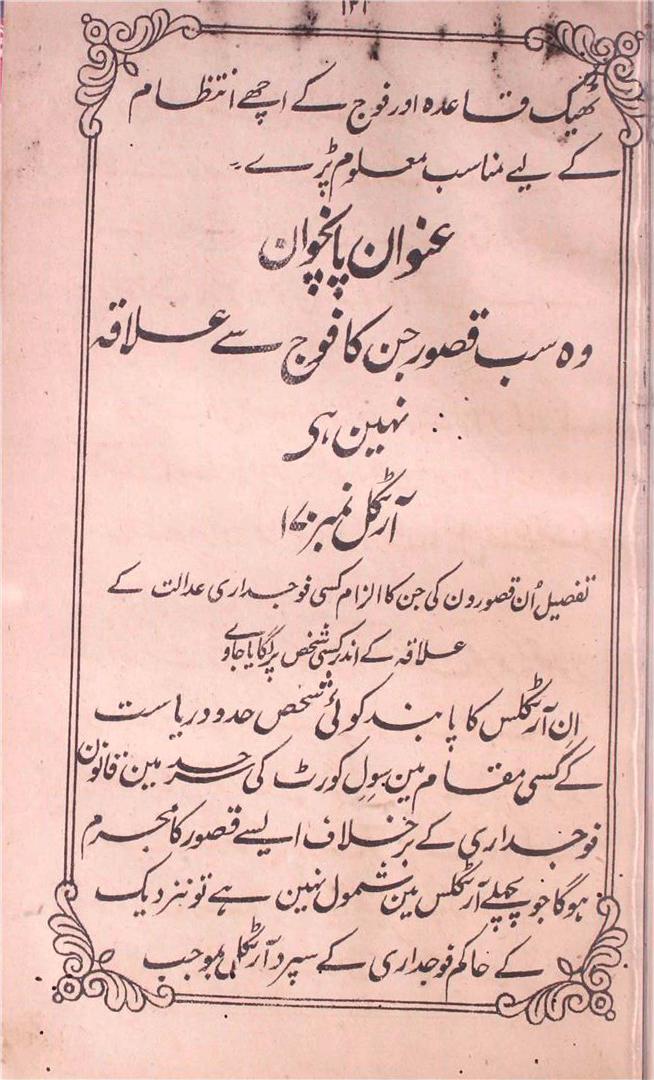 ۱۲۱
ٹھیک قاعدہ اور فوج کے اچھے انتظام
کے لیے مناسب معلوم پڑے۔
عنوان پانچوان
وہ سب قصور جن کا فوج سے علاقہ
نہین ہی
آرٹکل نمبر ۱۷۰
تفصیل اُن قصورون کی جن کا الزام کسی فوجداری عدالت کے
علاقہ کے اندر کسی شخص پر لگایا جاوے
اِن آرٹکلس کا پابند کوئی شخص حدود ریاست
کے کسی مقام مین سوِل کورٹ کی سرحد مین قانون
فوجداری کے برخلاف ایسے قصور کا مجرم
ہوگا جو پچھلے آرٹکلس مین شمول نہین ہے تو نزدیک
کے حاکم فوجداری کے سپرد آرٹکل بموجب